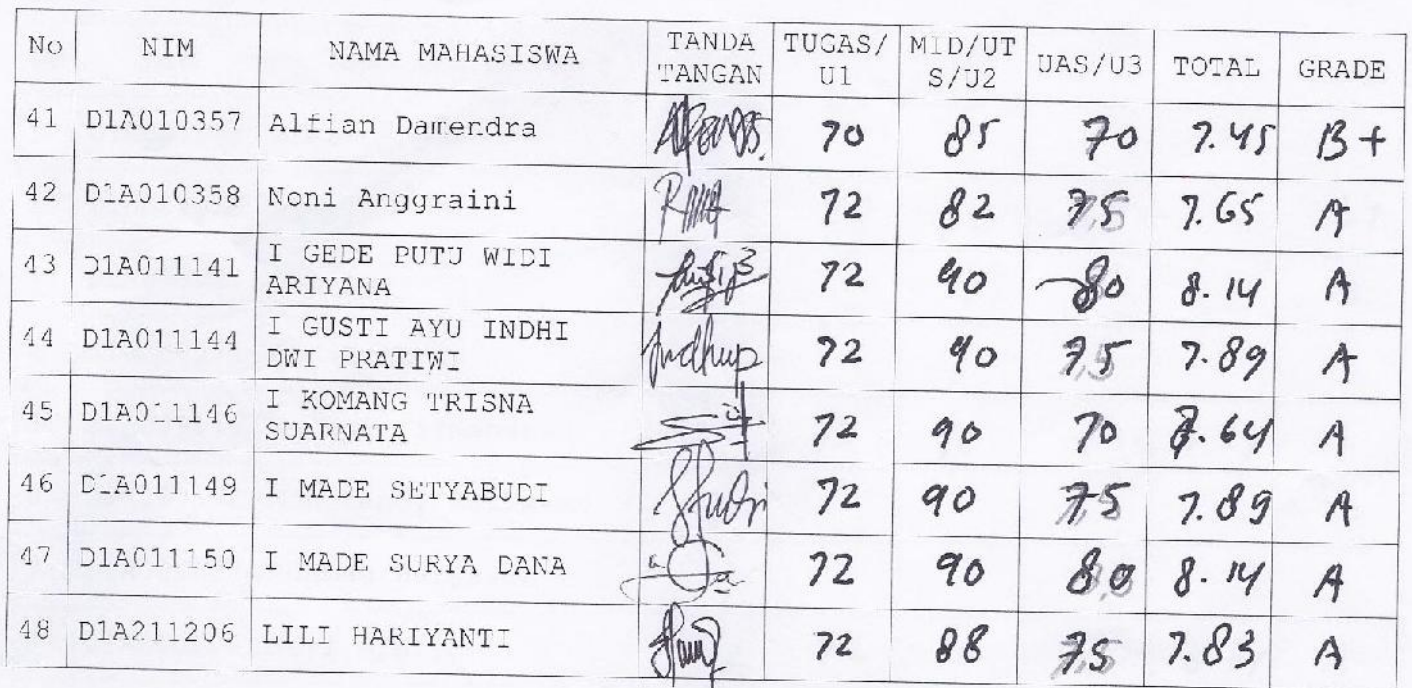 No NIM NAMA MAHASISWA TANDA TANGAN TUGAS/U1 MID/UTS/U2 UAS/U3 TOTAL GRADE
41 D1A010357 Alfian Damendra 70 85 70 7.45 B+
42 D1A010358 Noni Anggraini 72 82 75 7.65 A
43 D1A011141 I GEDE PUTU WIDI ARIYANA 72 90 80 8.14 A
44 D1A011144 I GUSTI AYU INDHI DWI PRATIWI 72 90 75 7.89 A
45 D1A011146 I KOMANG TRISNA SUARNATA 72 90 70 7.64 A
46 D1A011149 I MADE SETYABUDI 72 90 75 7.89 A
47 D1A011150 I MADE SURYA DANA 72 90 80 8.14 A
48 D1A211206 LILI HARIYANTI 72 88 75 7.83 A